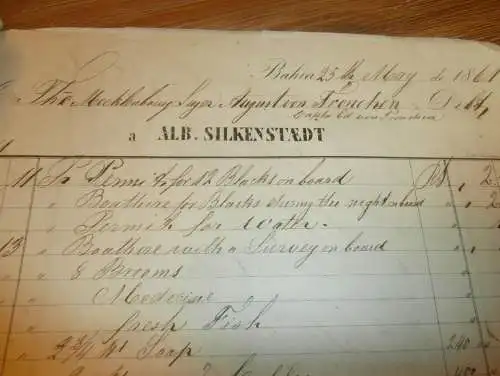 Bahia 25th May de 1861
The Mecklenburg Super August von Fronchen - Debt,
Captn Ed von Fronchen
a ALB. SILKENSTÆDT
11 To Permit for 12 Blacks on board Rs " 2
" Boathire for Blacks during the night
" Permit for water.
13 " Boathire with a Survey on board
" 8 Brooms
" Medecine
" fresh Fish
" 2 3/4 lbs Soap 240